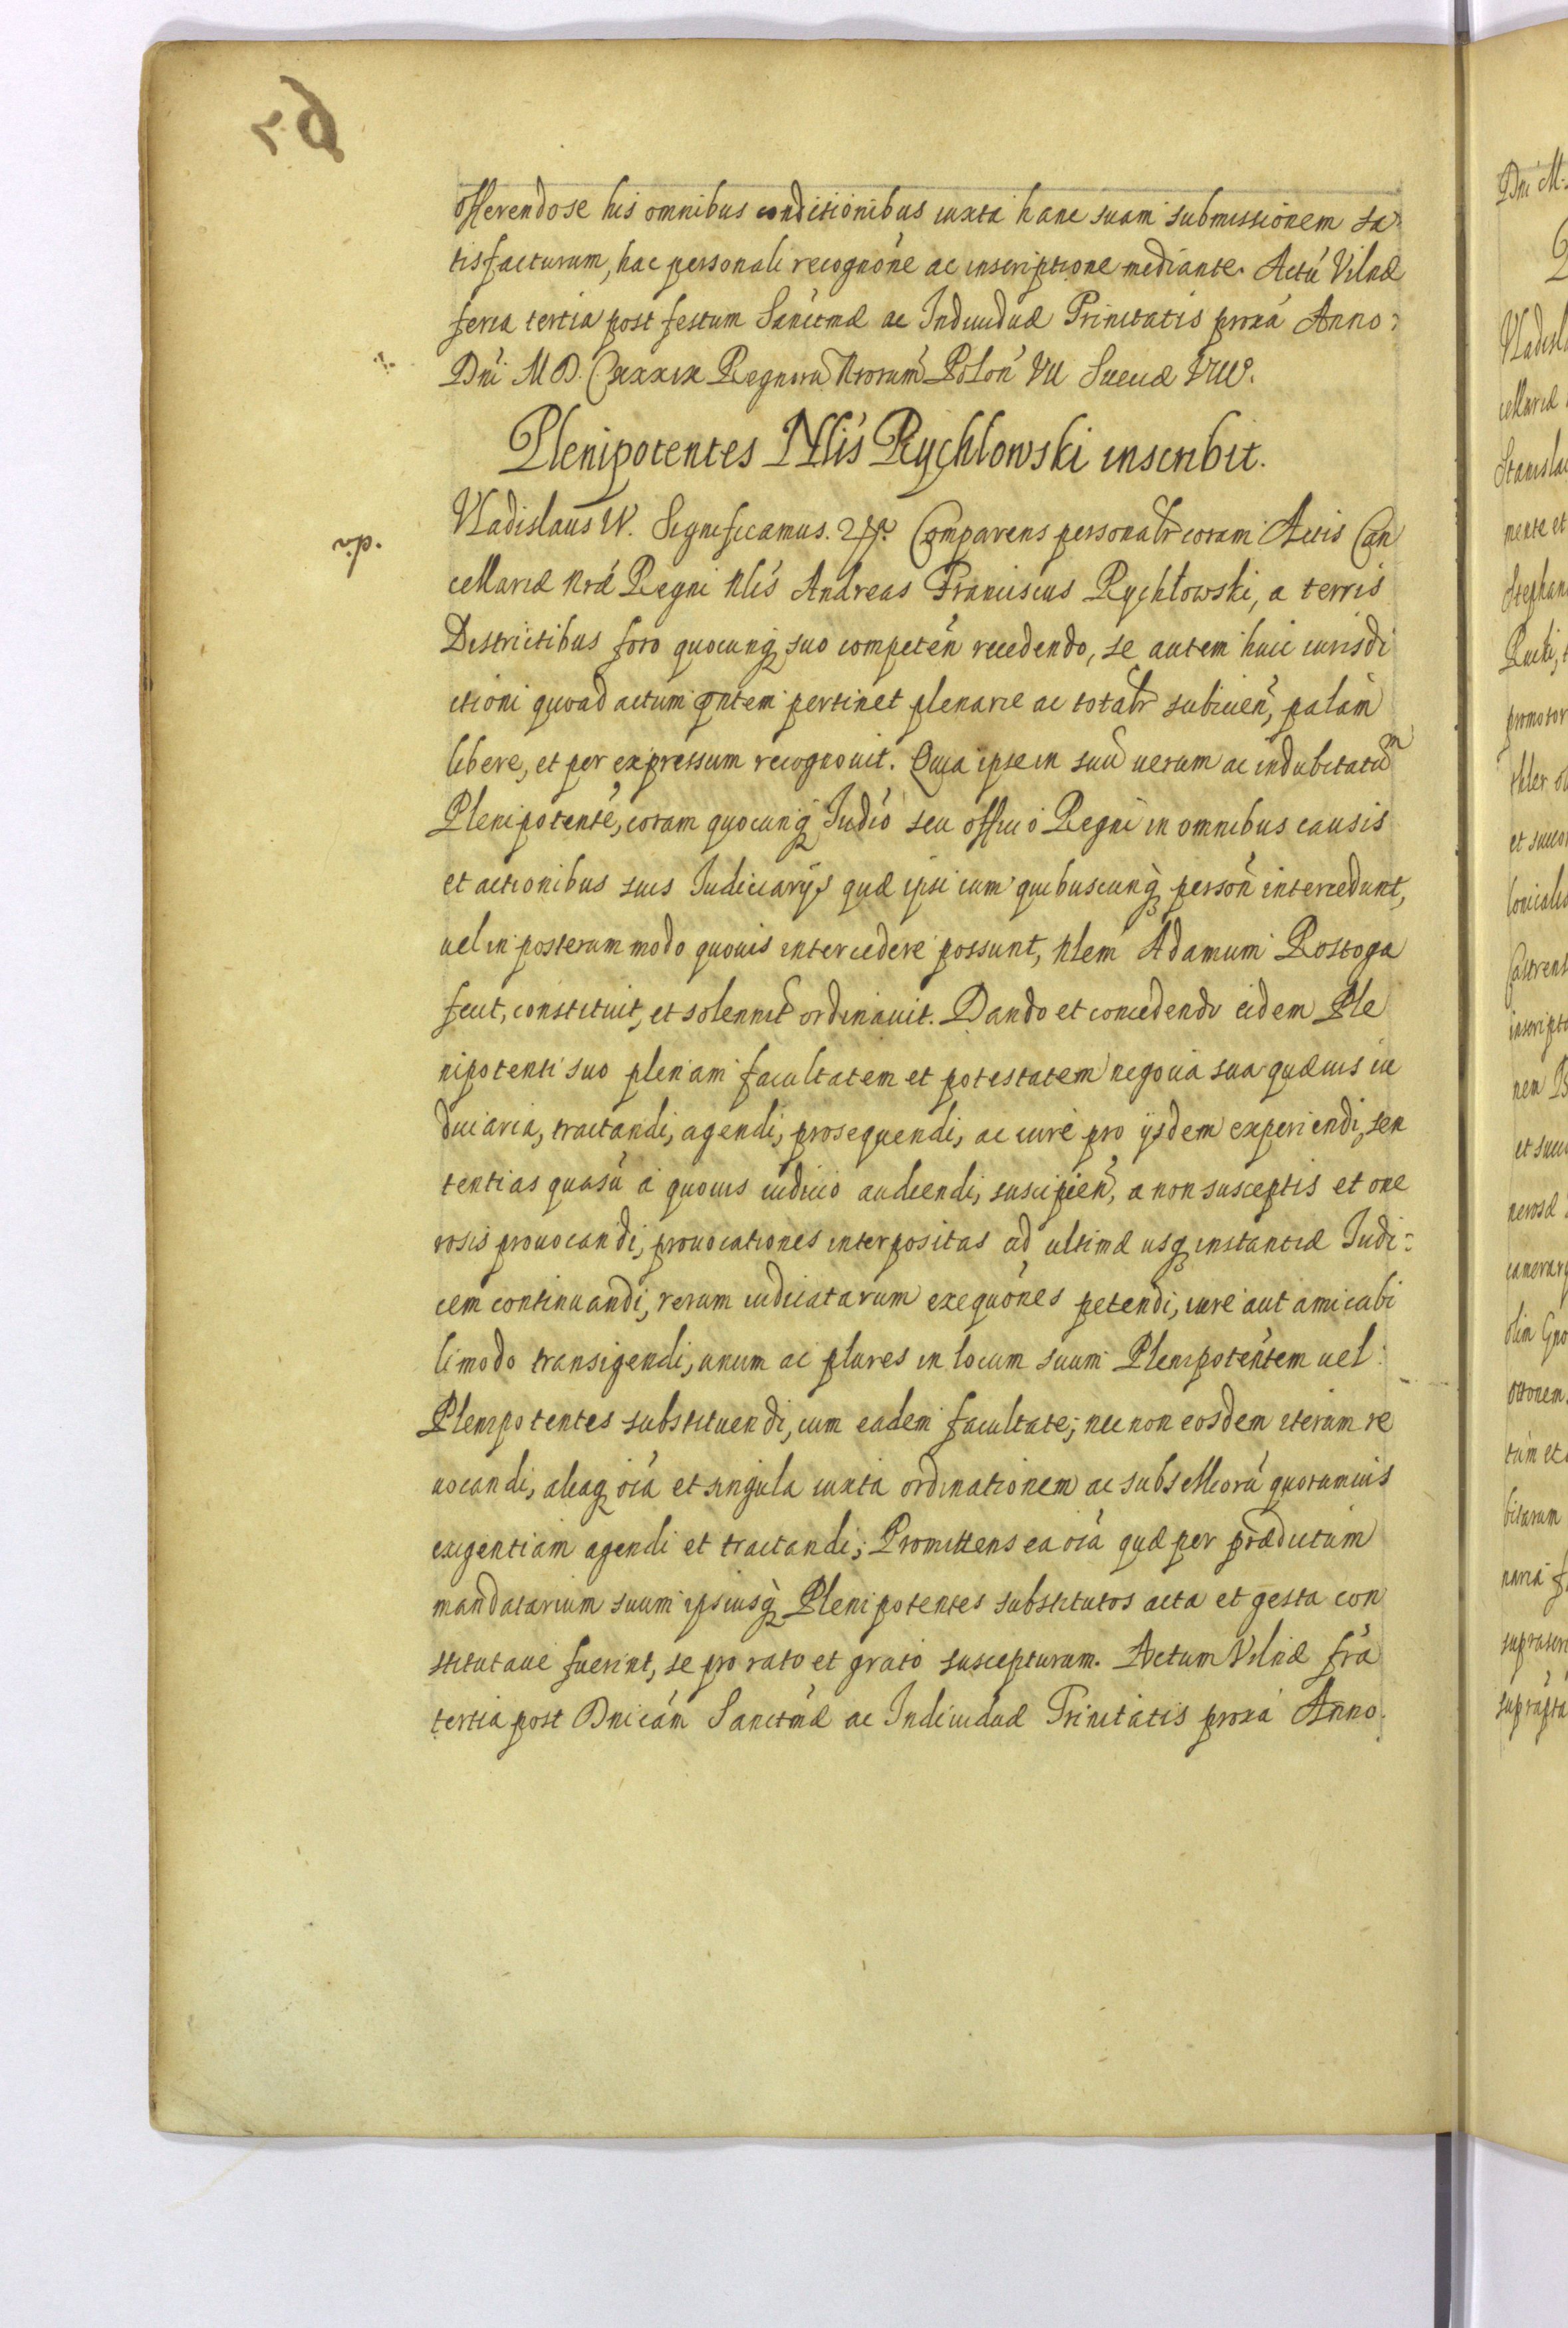 offerendo se his omnibus conditionibus iuxta hanc suam submissionem sa
tisfacturum, hac personali recognone ac inscriptione mediante. Actú Vilnæ
feria tertia post festum Sanctmæ ac Indiuiduæ Trinitatis proxá Anno:
Dni M D. CXXXIX Regnorú Nrorum Polon VII Sueciæ VIII.
Plenipotentes Nlis Rychlowski inscribit.
Vladislaus IV. Significamus. Comparens personalr coram Actis Can
cellariæ Nræ Regni Nlis Andreas Franciscus Rychłowski, a terris
Districtibus foro quocunq suo competen recedendo, se autem huic iurisdi
ctioni quoad actum pntem pertinet plenarie ac totalr subiicien, palam
libere, et per expressum recognouit. Quia ipse in suu uerum ac indubitatum
Plenipotente, coram quocunq Iudio seu officio Regni in omnibus causis
et actionibus suis Iudiciarijs quæ ipsi cum quibuscunq person intercedunt,
uel in posterum modo quouis intercedere possunt, Nlem Adamum Rostoga
fecit, constituit, et solennit ordinauit. Dando et concedendo eidem Ple
nipotenti suo plenam facultatem et potestatem negocia sua quæuis iu
diciaria, tractandi, agendi, prosequendi, ac iure pro ijsdem experiendi, sen
tentias quasú á quouis iudicio audiendi, suscipien, a non susceptis et one
rosis prouocandi, prouocationes interpositas ad ultimæ usq instantiæ Iudi=
cem continuandi, rerum iudicatarum exequónes petendi, iure aut amicabi
li modo transigendi, unum ac plures in locum suum Plenipotentem uel
Plenipotentes substituendi, cum eadem facultate; nec non eosdem iterum re
uocandi, aliaq oia et singula iuxta ordinationem ac subselliorú quorumuis
exigentiam agendi et tractandi; Promittens ea oia quæ per prædictum
mandatarium suum ipsiusq Plenipotentes substitutos acta et gesta con
stitutaue fuerint, se pro rato et grato suscepturum. Actum Vilnæ fra
tertia post Dnicam Sanctmæ ac Indiuiduæ Trinitatis proxá Anno.